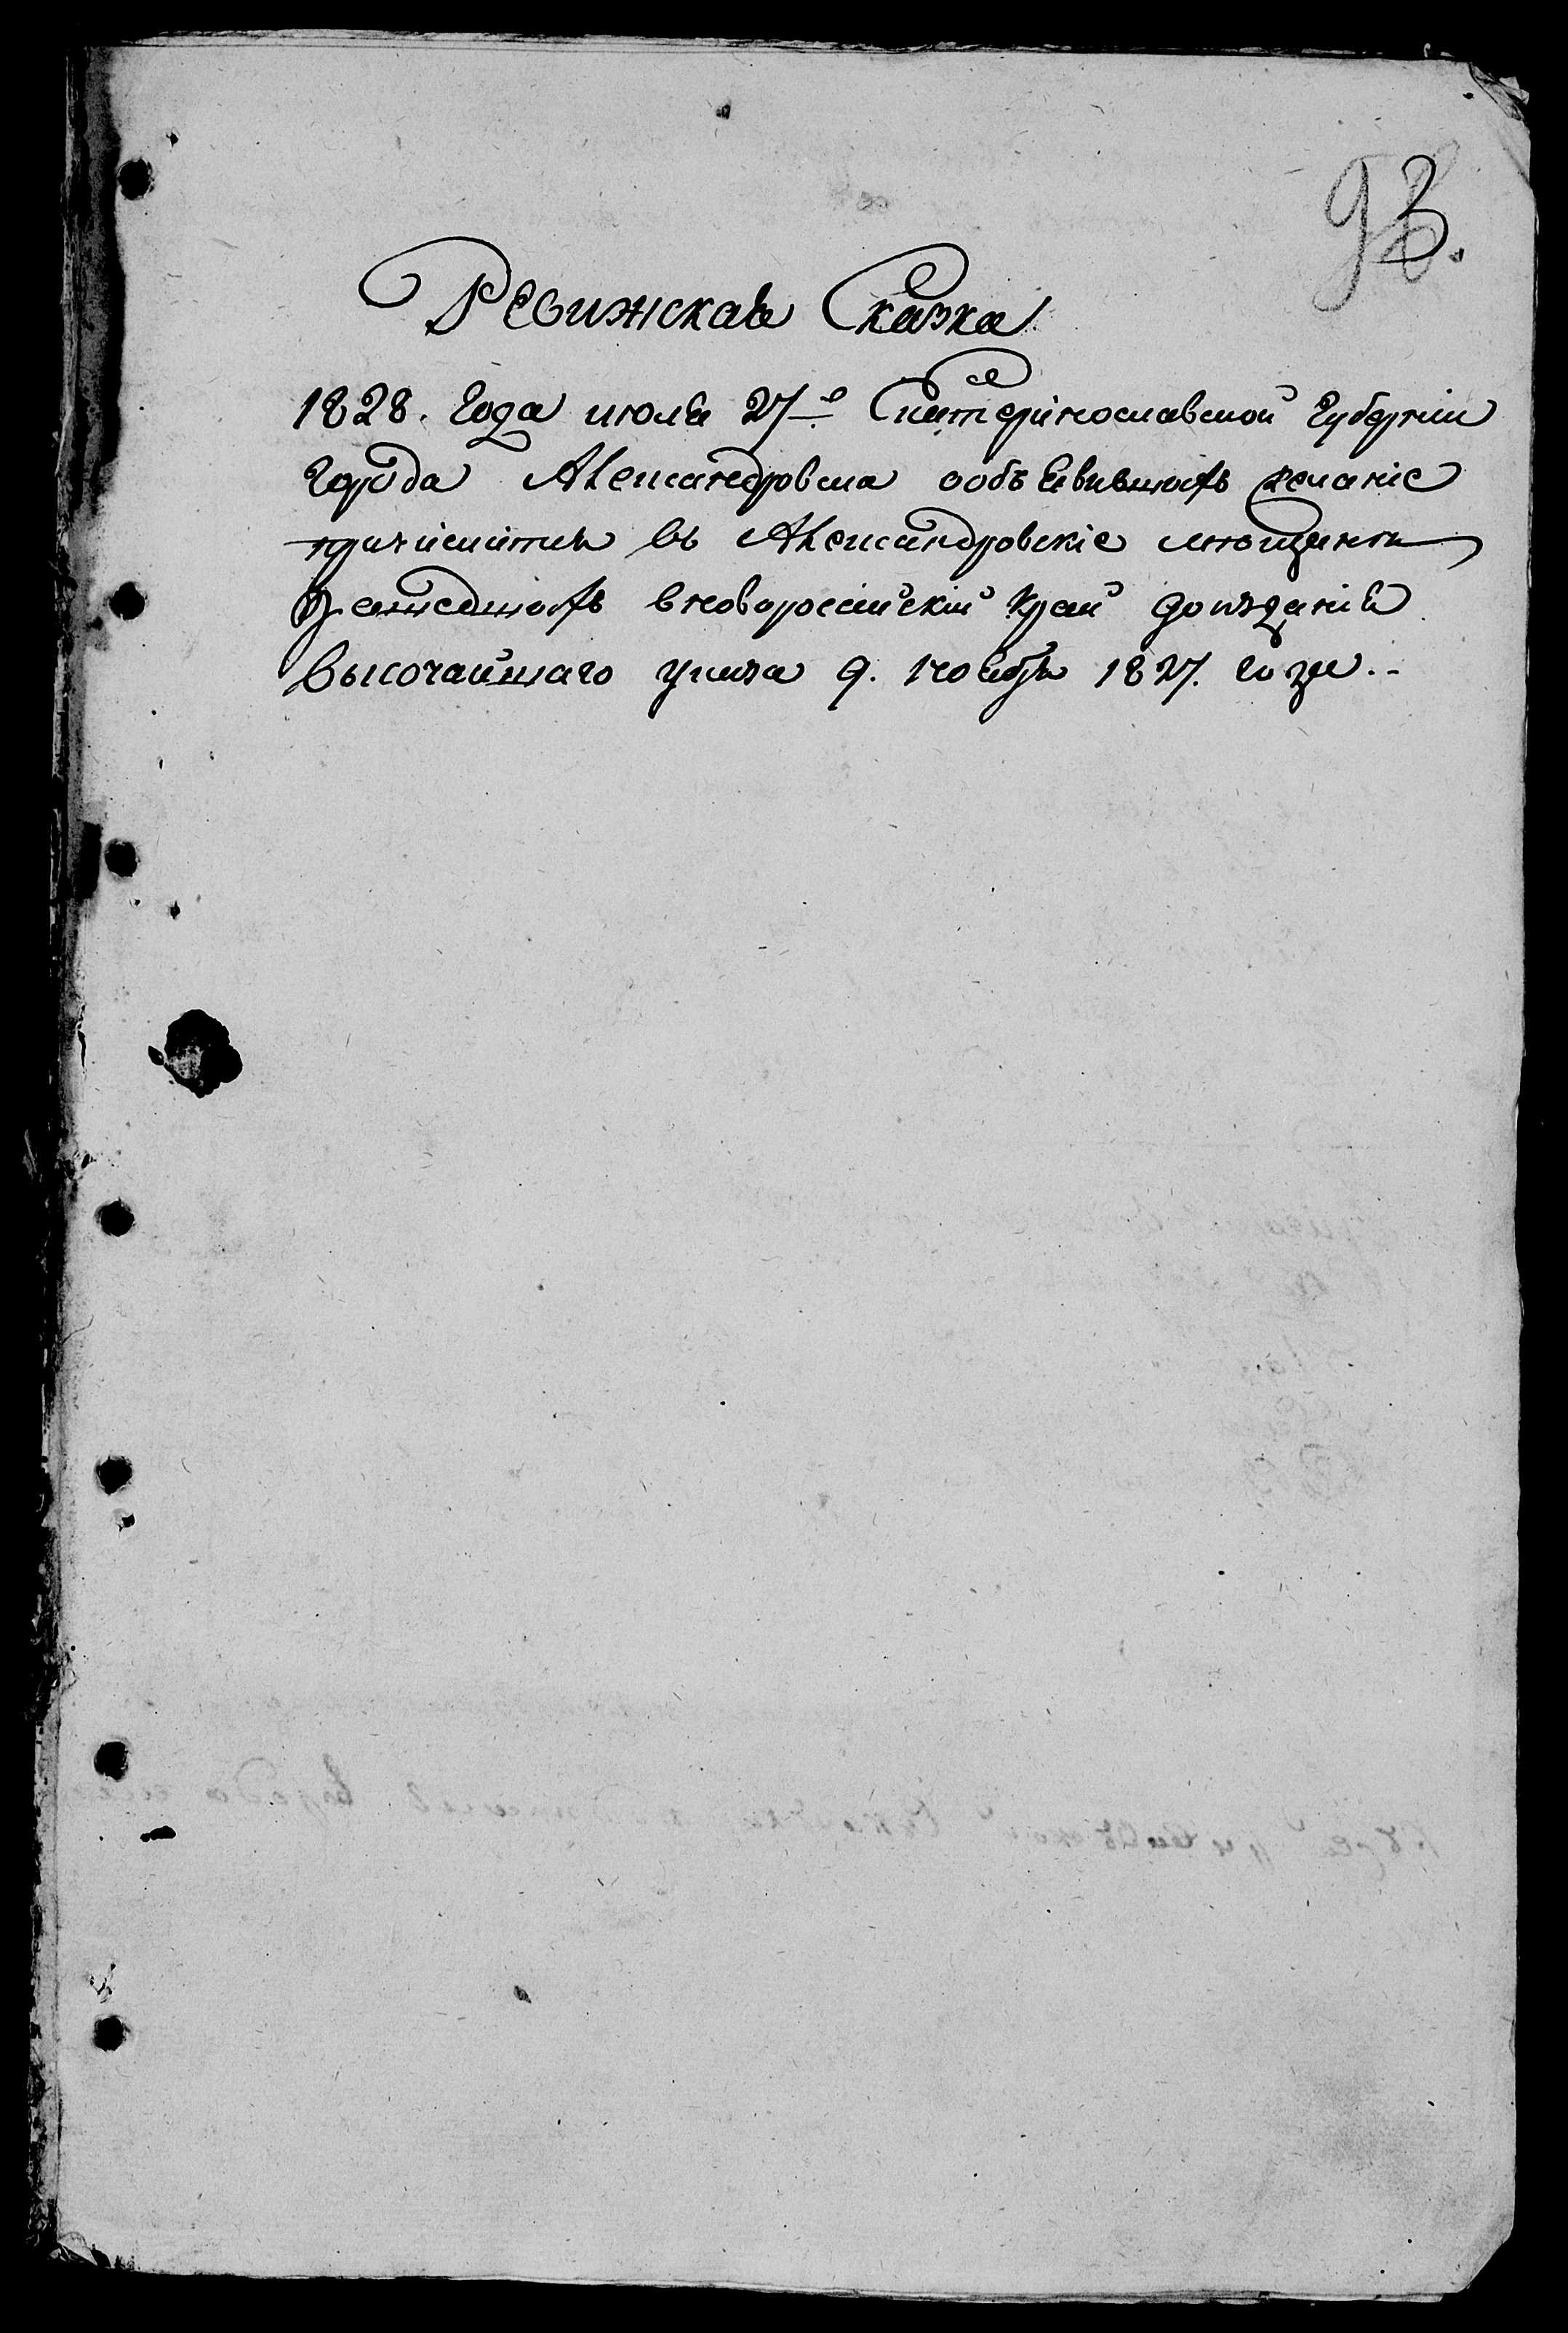 93.
Ревижская Сказка
1828. Года июля 27-е Екатеринославской Губернии
города Александровска ообъявившихъ желаніе
причислится въ Александровскіе мѣщанѣ
зашедшихъ вновороссійскій край доизданія
высочайшаго указа 9. ноября 1827. года.